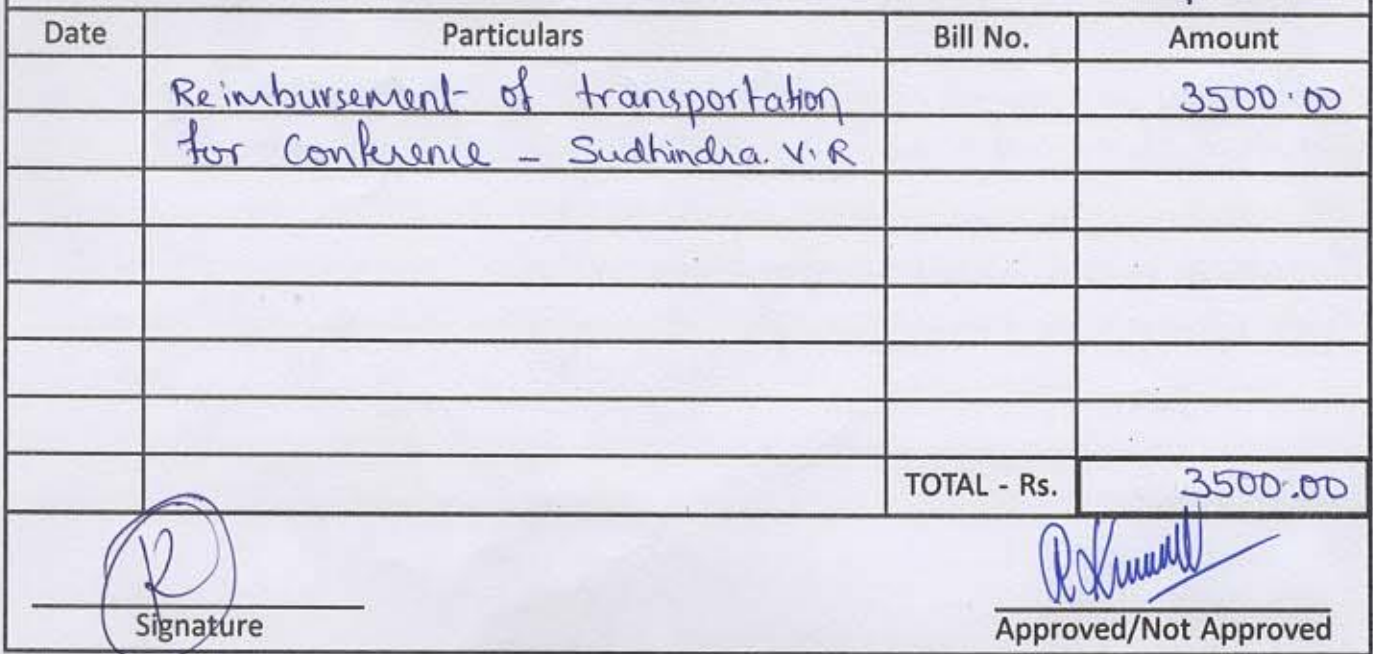 Date Particulars Bill No. Amount
Reimbursement of transportation 3500.00
for Conference - Sudhindra. V.R
TOTAL - Rs. 3500.00
Signature Approved/Not Approved